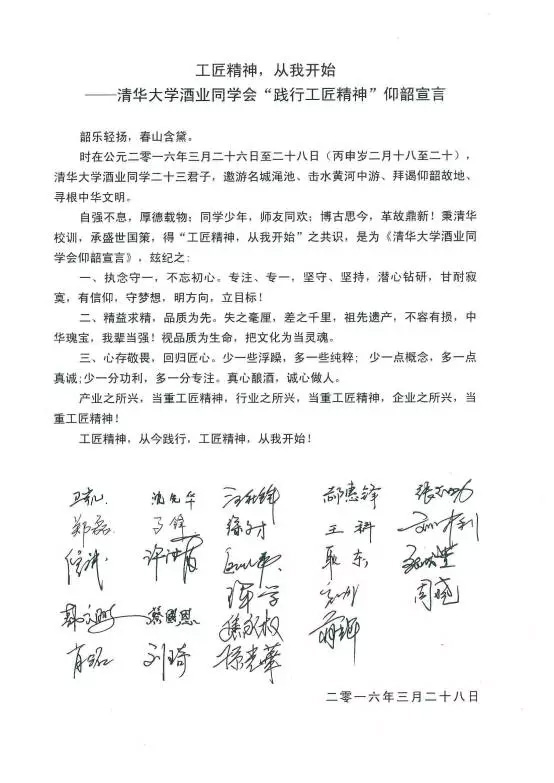 工匠精神，从我开始
——清华大学酒业同学会“践行工匠精神”仰韶宣言
韶乐轻扬，春山含黛。
时在公元二零一六年三月二十六日至二十八日（丙申岁二月十八至二十），
清华大学酒业同学二十三君子，遨游名城渑池、击水黄河中游、拜谒仰韶故地、
寻根中华文明。
自强不息，厚德载物；同学少年，师友同欢；博古思今，革故鼎新！秉清华
校训，承盛世国策，得“工匠精神，从我开始”之共识，是为《清华大学酒业同
学会仰韶宣言》，兹纪之：
一、执念守一，不忘初心。专注、专一，坚守、坚持，潜心钻研，甘耐寂
寞，有信仰，守梦想，明方向，立目标！
二、精益求精，品质为先。失之毫厘，差之千里，祖先遗产，不容有损，中
华瑰宝，我辈当强！视品质为生命，把文化为当灵魂。
三、心存敬畏，回归匠心。少一些浮躁，多一些纯粹； 少一点概念，多一点
真诚;少一分功利，多一分专注。真心酿酒，诚心做人。
产业之所兴，当重工匠精神，行业之所兴，当重工匠精神，企业之所兴，当
重工匠精神！
工匠精神，从今践行，工匠精神，从我开始！
郑磊 王科
耿东
刘琦
二零一六年三月二十八日